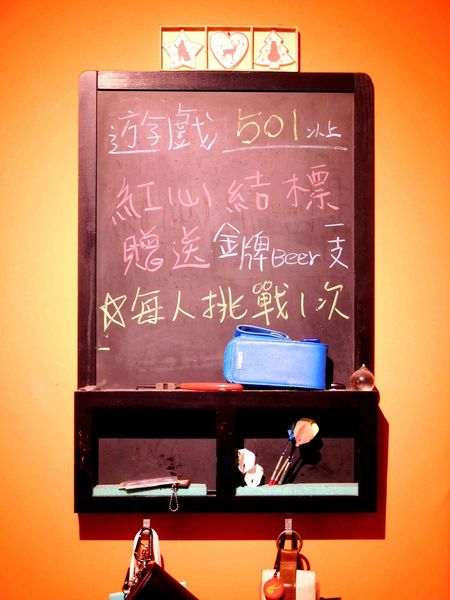 遊戲 501以上
紅心結標
贈送金牌Beer一支
☆每人挑戰1次